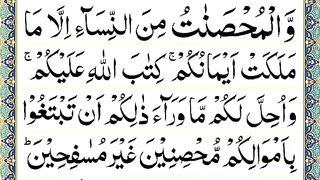 وَّ الْمُحْصَنٰتُ مِنَ النِّسَآءِ اِلَّا مَا
مَلَكَتْ اَيْمَانُكُمْ ۚ كِتٰبَ اللّٰهِ عَلَيْكُمْ ۚ
وَ اُحِلَّ لَكُمْ مَّا وَرَآءَ ذٰلِكُمْ اَنْ تَبْتَغُوْا
بِاَمْوَالِكُمْ مُّحْصِنِيْنَ غَيْرَ مُسٰفِحِيْنَ ؕ